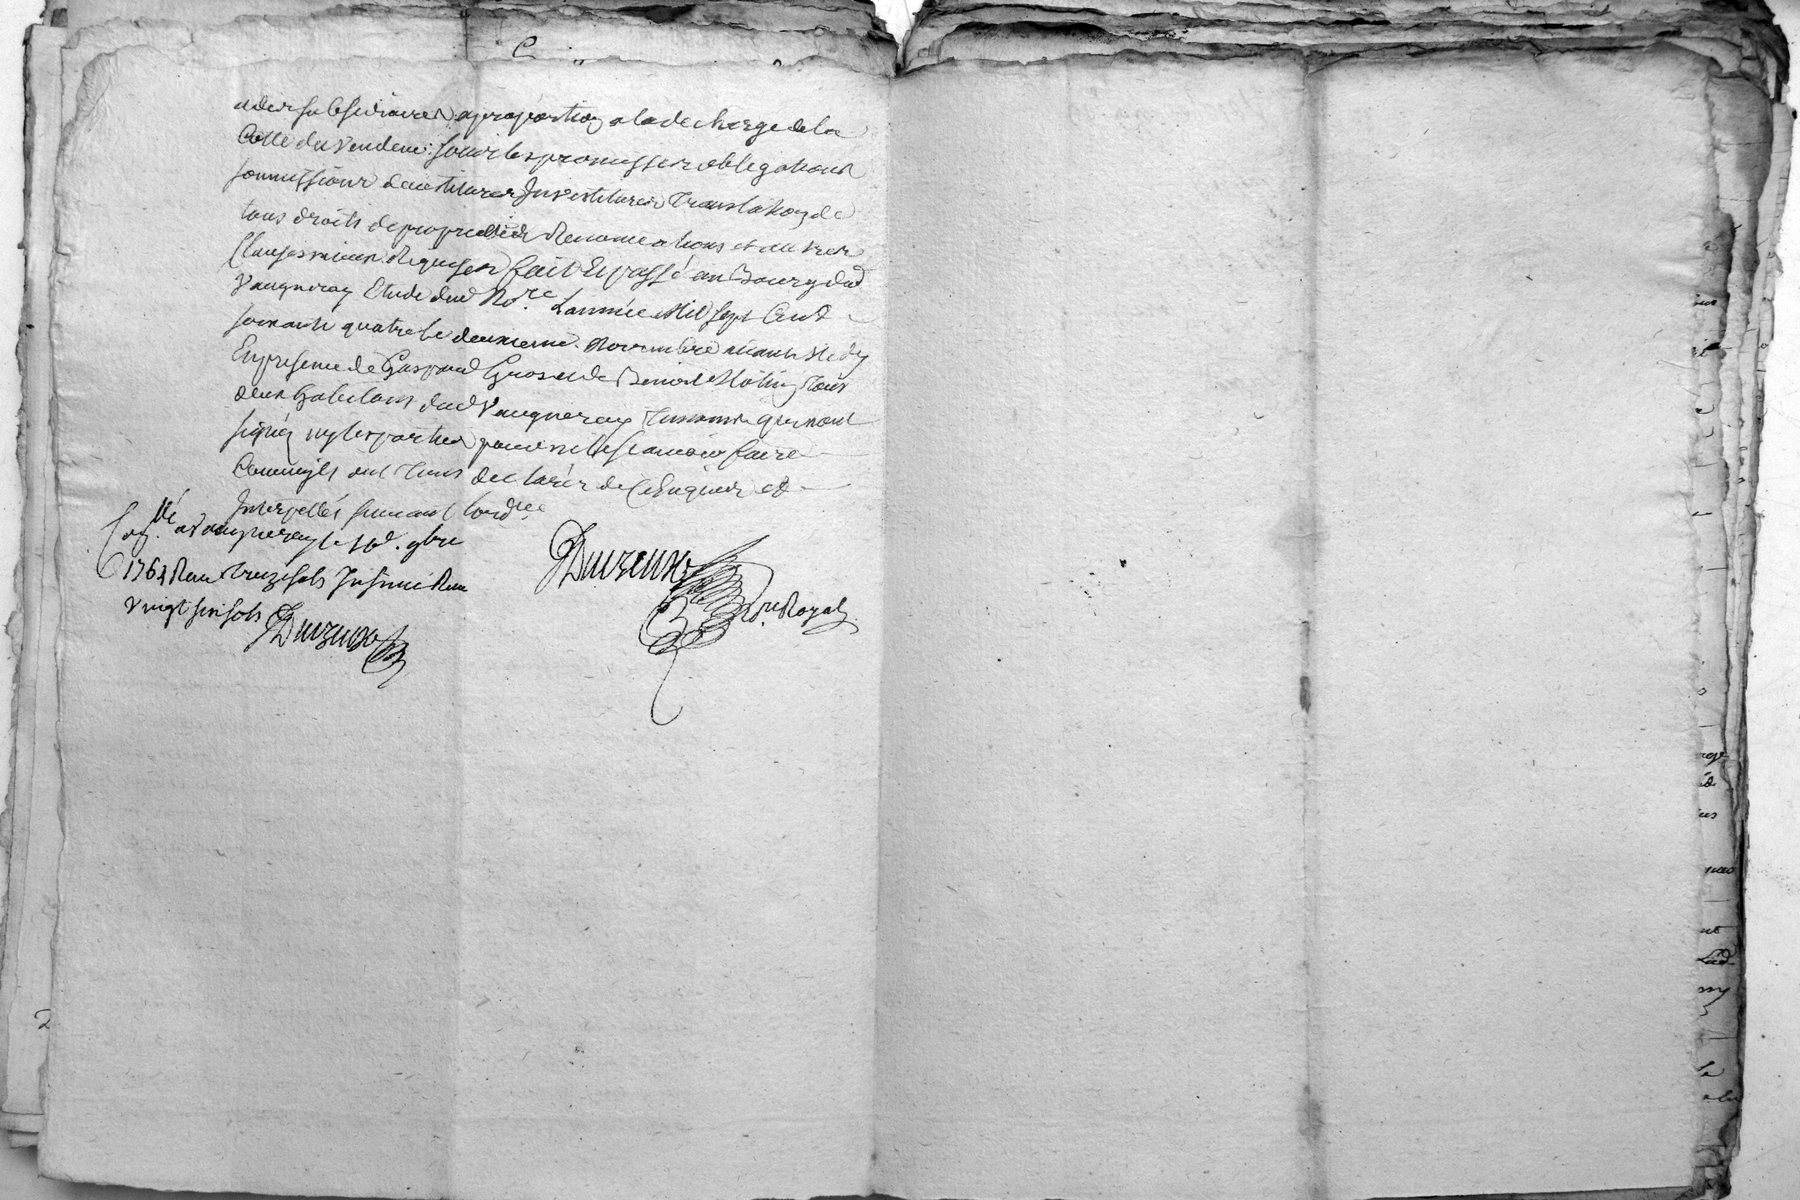 aides subsidiaires a proportion a la decharge de la
Cotte du vendeur: sous les promisses obligations
soumissions devestitures Investitures Translation de
tous droits de proprietés Renonciations et autres
Clauses mieux Requises fait Et passé au Bourg dud
Vaugneray Etude dud No.re L'année Mil sept Cent
soixante quatre le deuxieme. Novembre avant Midy
En presence de Gaspard Gros et de Benoit Molin tous
deux habitans dud Vaugneray Temoins qui n'ont
signés ny les parties pour ne le scavoir faire
Comm'ils ont Tous declarér de ce Enquis et
Interpellés suivant l'ord.ce
a Vaugneray le 9bre
1764 Reçu treize sols Insinué Reçu
Vingt six sols
No.re Royal